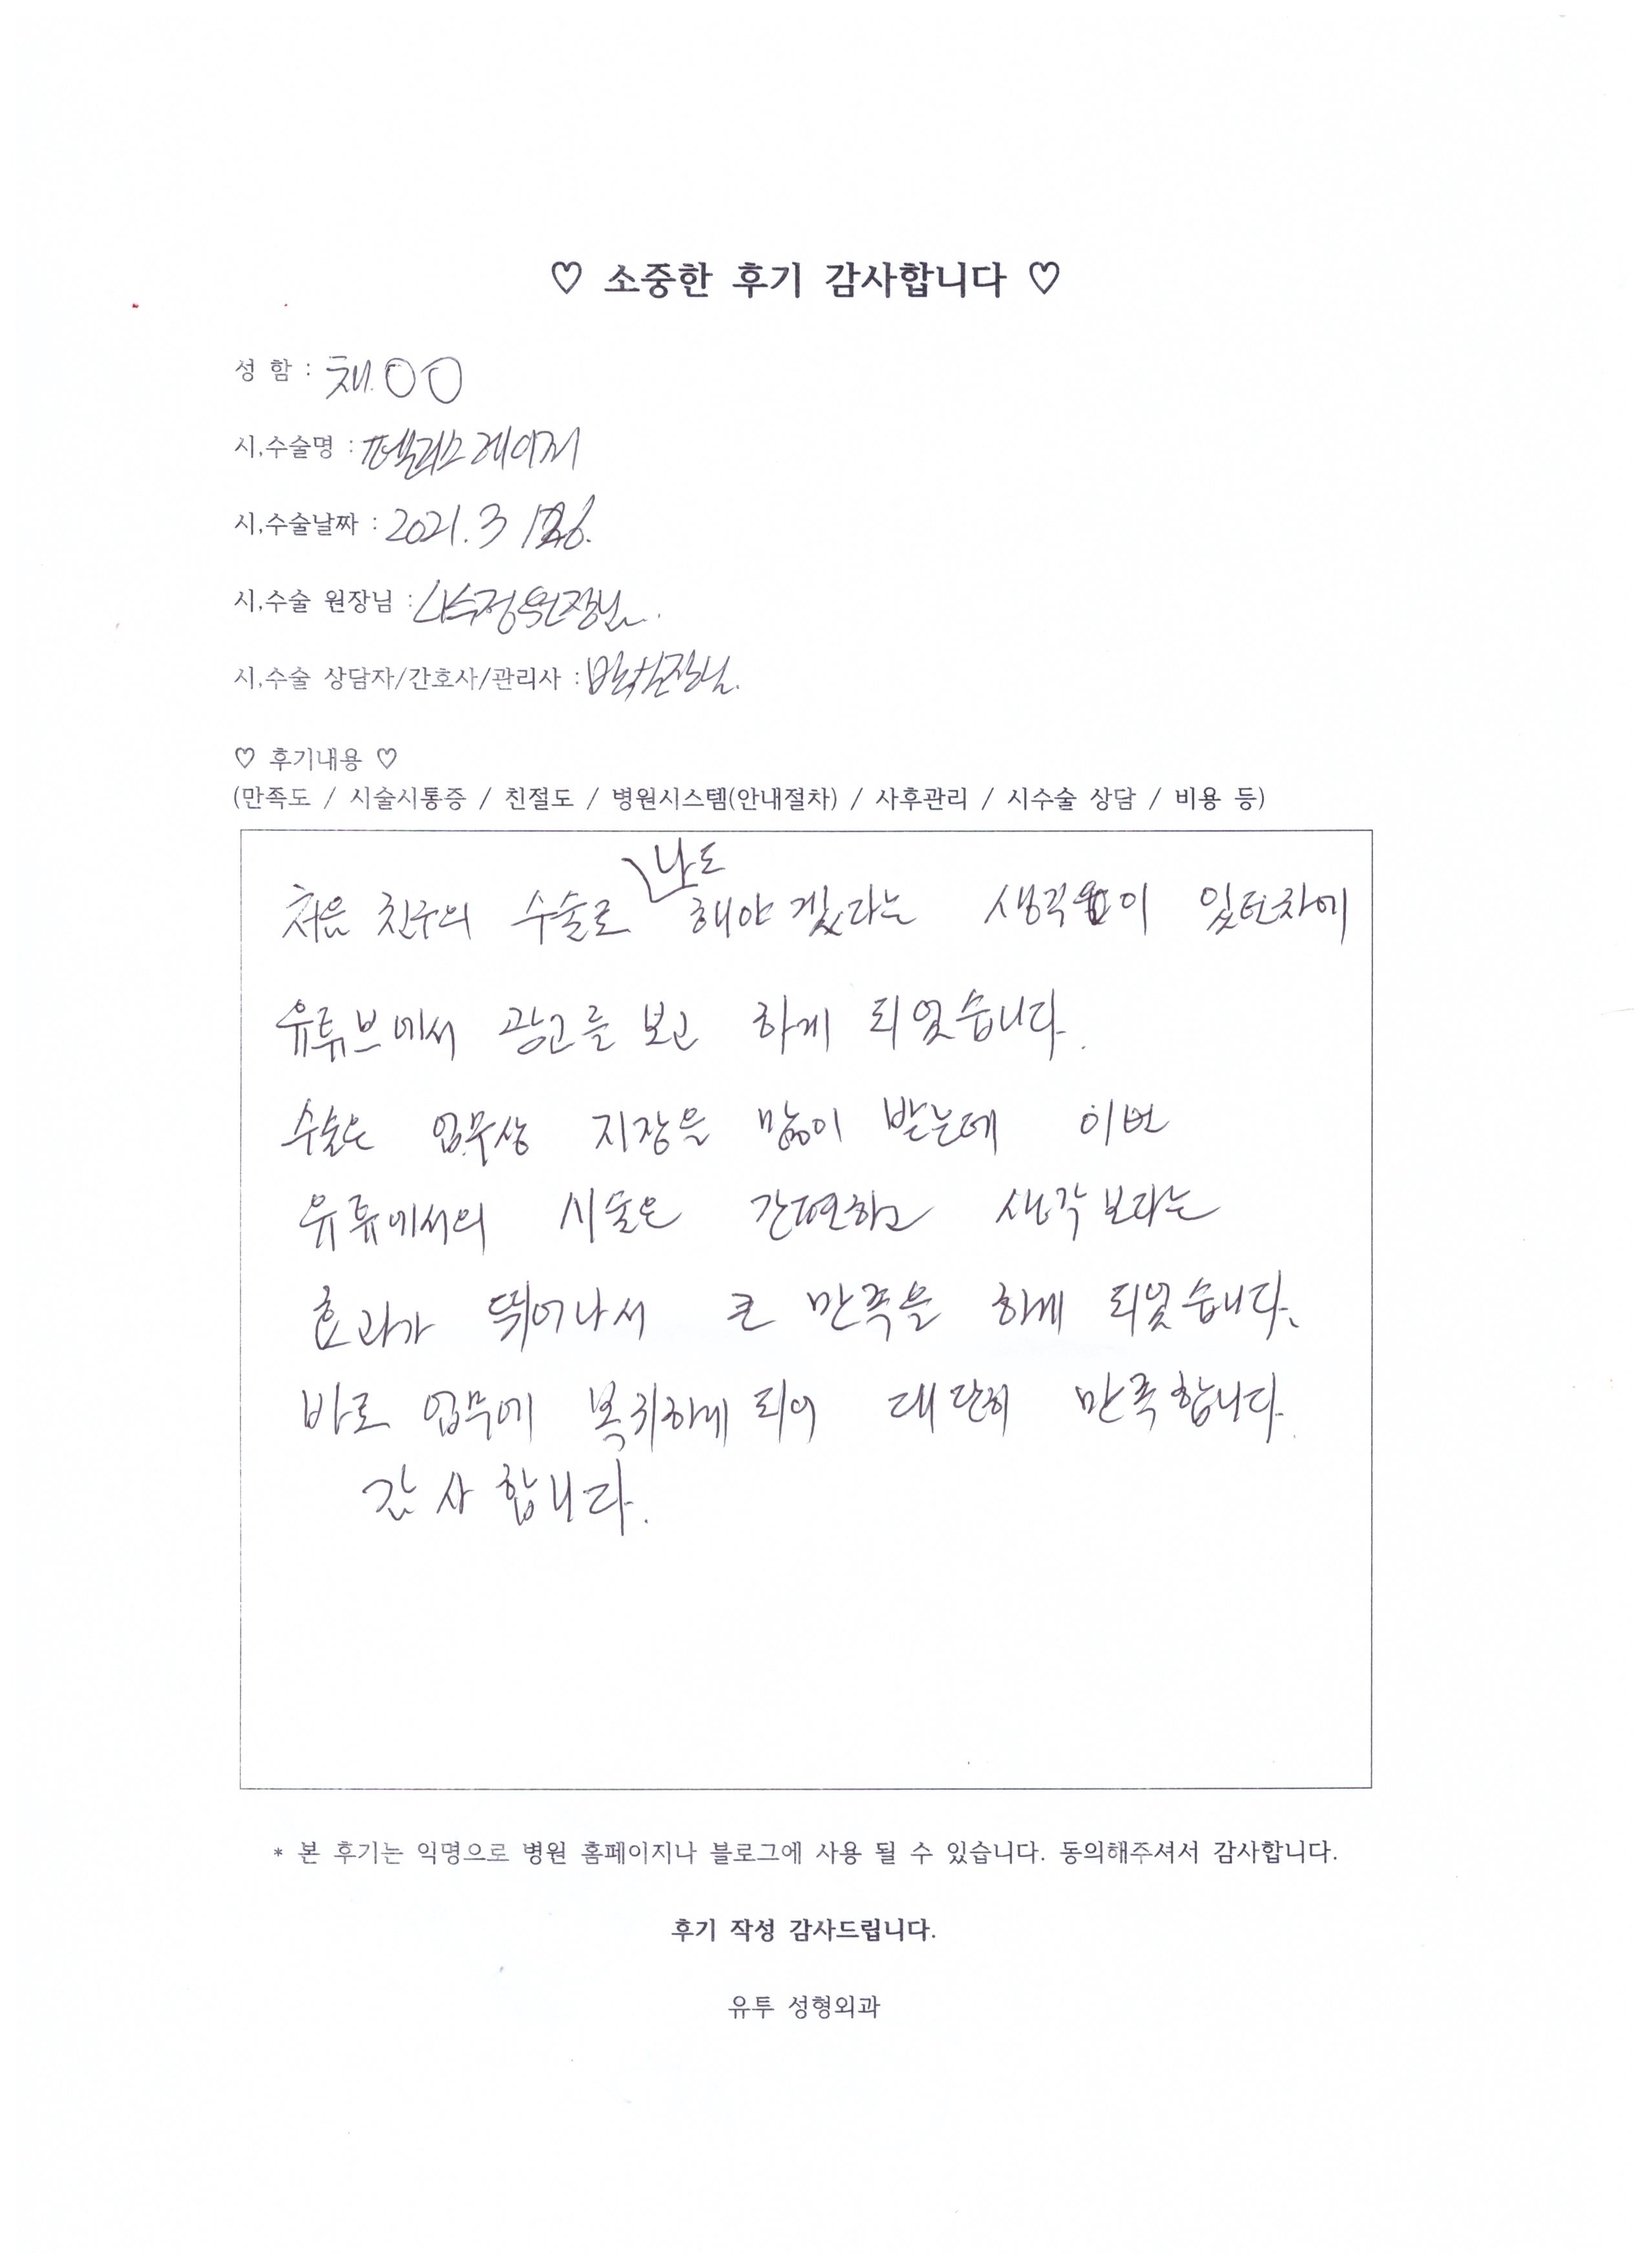 ♡ 소중한 후기 감사합니다 ♡
성 함 : 채○○
시,수술명 : 펠리스 레이저
시,수술날짜 : 2021. 3
시,수술 원장님 : 원장님.
시,수술 상담자/간호사/관리사 : 박실장님.
♡ 후기내용 ♡
(만족도 / 시술시통증 / 친절도 / 병원시스템(안내절차) / 사후관리 / 시수술 상담 / 비용 등)
처음 친구의 수술로 나도 해야 겠다는 생각이 있던차에
유튜브에서 광고를 보고 하게 되었습니다.
수술은 업무상 지장을 많이 받는데 이번
유튜에서의 시술은 간편하고 생각보다는
효과가 뛰어나서 큰 만족을 하게 되었습니다.
바로 업무에 복귀하게 되어 대단히 만족합니다.
감사합니다.
* 본 후기는 익명으로 병원 홈페이지나 블로그에 사용 될 수 있습니다. 동의해주셔서 감사합니다.
후기 작성 감사드립니다.
유투 성형외과